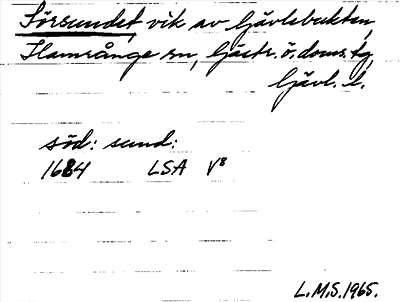 Sörsundet, vik av Gävlebukten,
Hamrånge sn, Gästr. ö. doms. tg,
Gävl. l.
söd: sund:
1684 LSA V⁸
L.M.S. 1965.